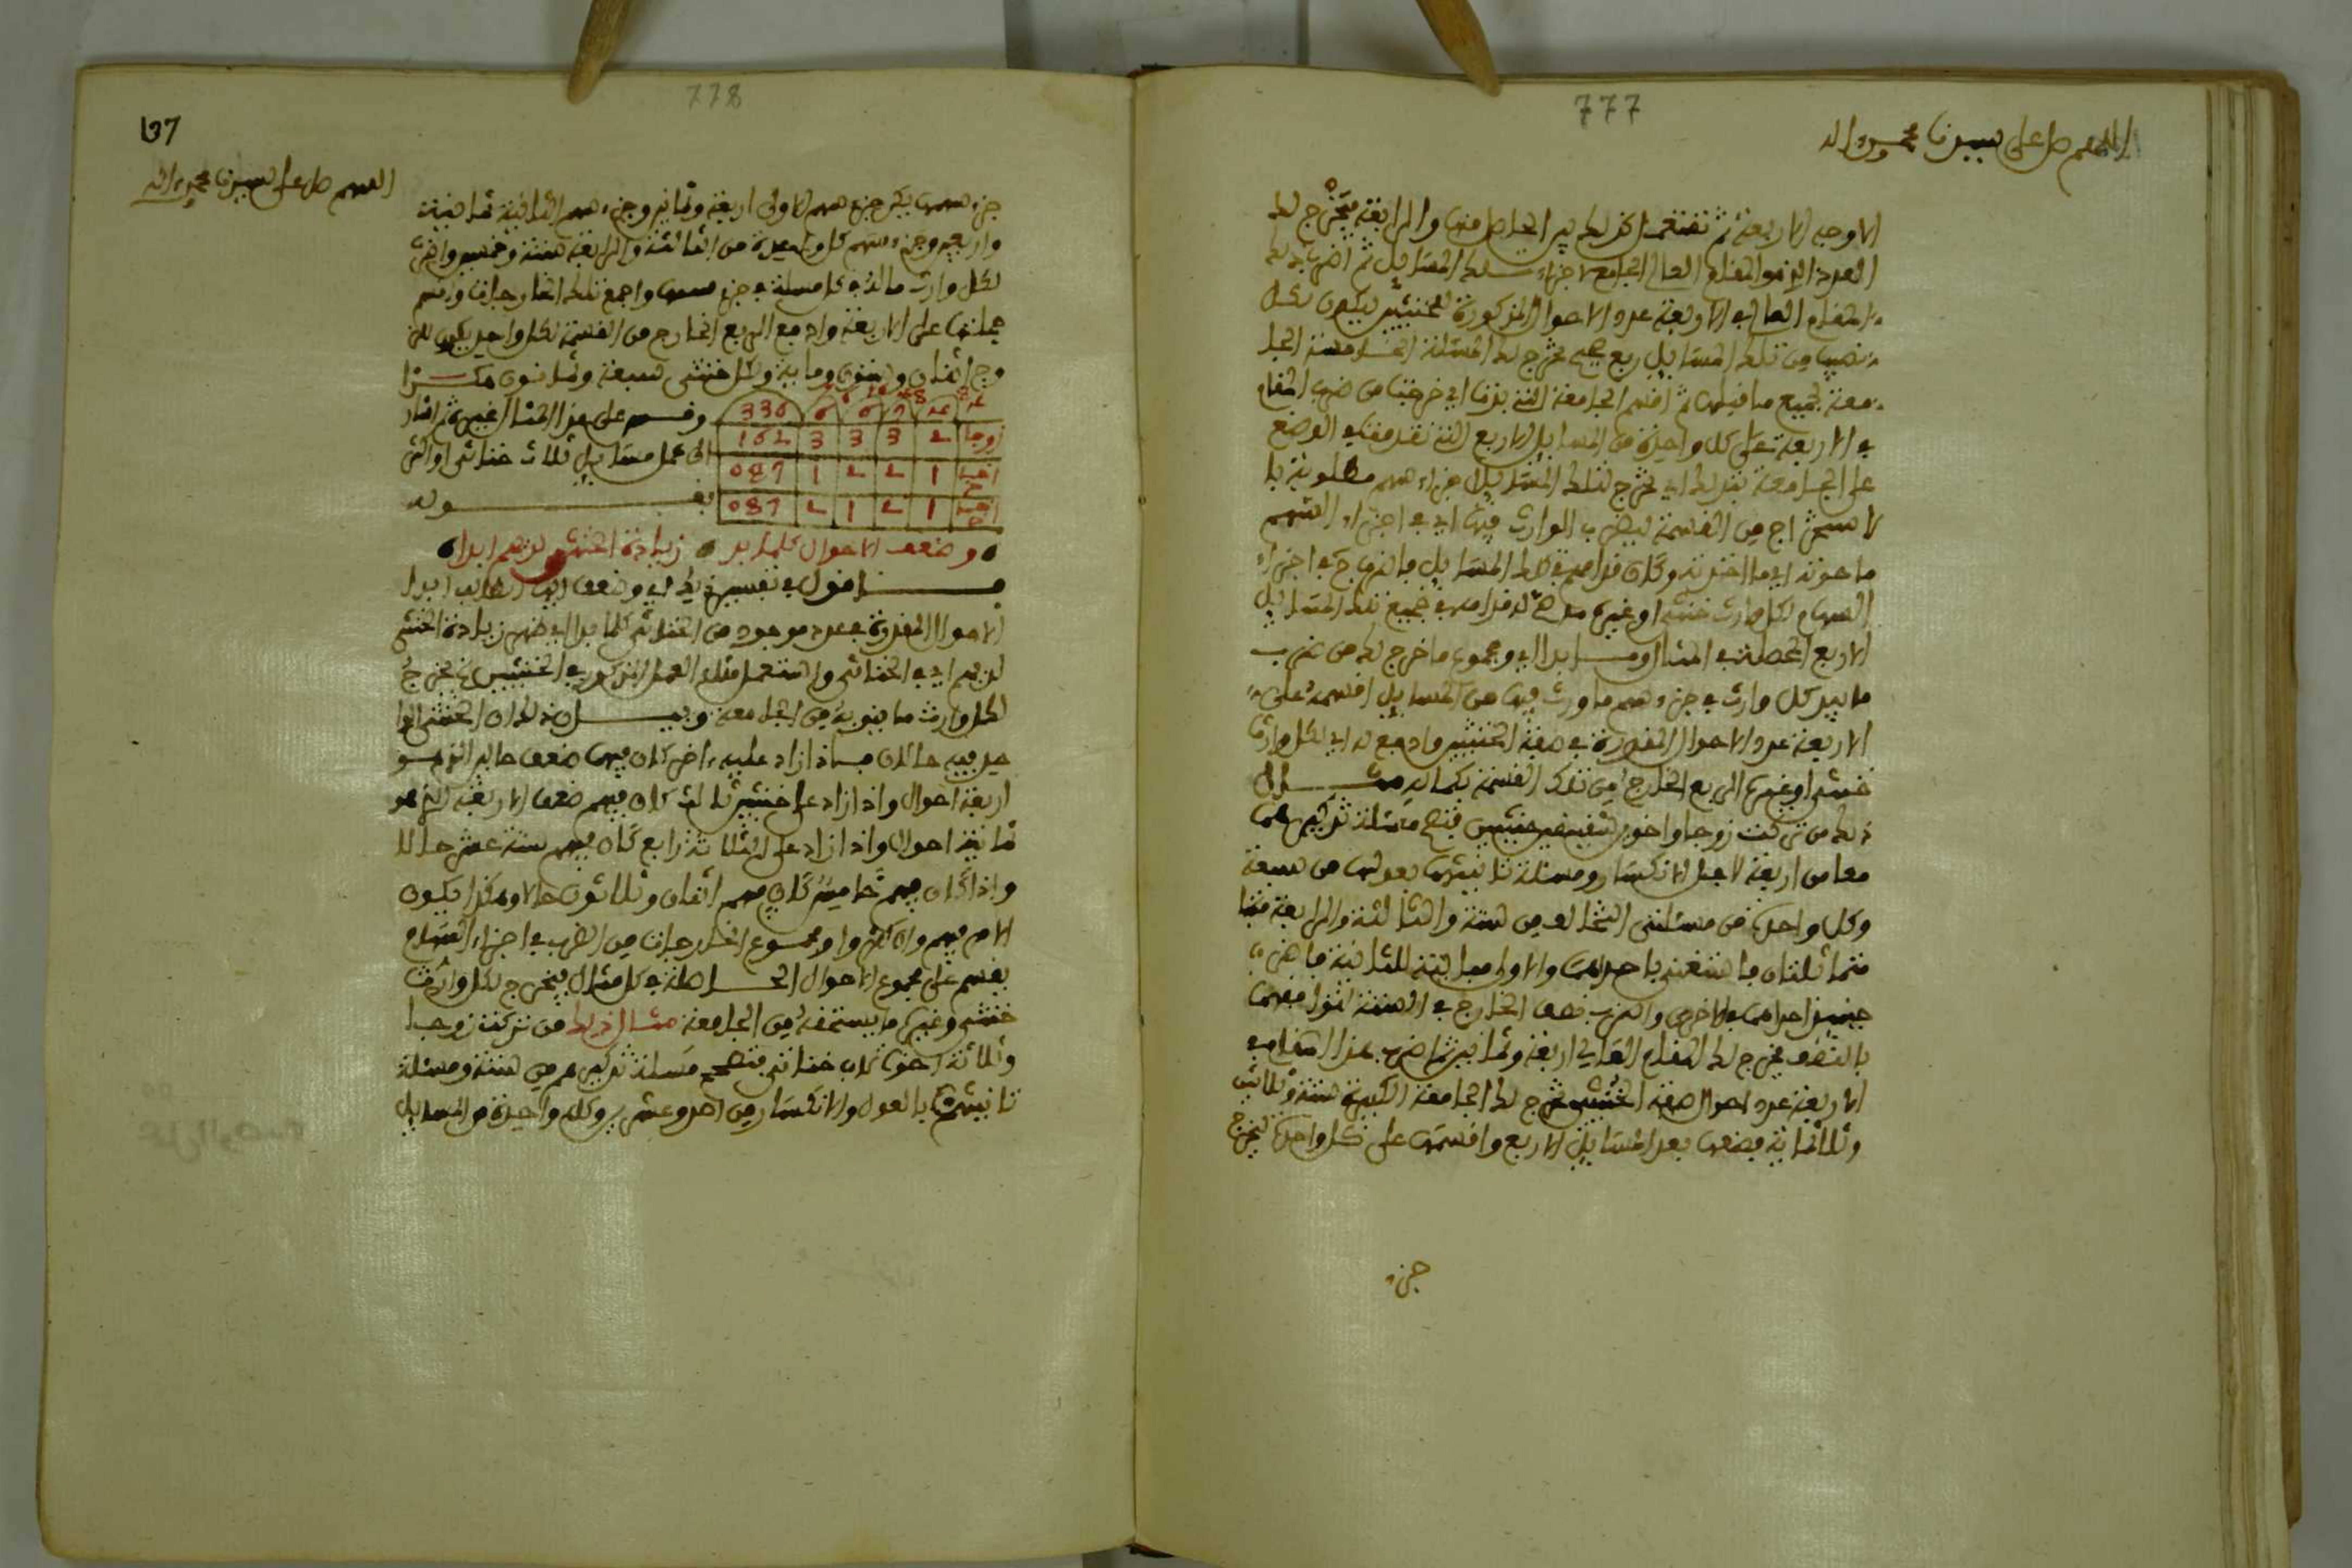 777
اللهم صل على سيدنا محمد وءاله
الاوجه الاربعة ثم تفتقر كذلك بين الحاصل منها والرابعة يخرج لك
العدد الذي هو المقام العالي الجامع لاجزاء تلك المسايل ثم اضرب ذلك
المقام العالي في الاربعة عدد الاحوال المذكورة للخنثيين ليكون لكل
نصيب من تلك المسايل ربع صحيح تخرج لك المسئلة الخامسة الجا
معة لجميع ما قبلها ثم اقسم الجامعة التي بزنا اي خرجت من ضرب المقام
في الاربعة على كل واحدة من المسايل الاربع التي تقدمت في الوضع
على الجامعة تخرج لتلك المسايل اجزاء سهم مطلوبة با
لاستخراج من القسمة ليضرب الوارث فيها اي في اجزاء السهم
ماحوته اي ما اخذته وكان فرا صح في تلك المسايل فالخارج في اجزاء
السهام لكل وارث خنثى او غيره في جميع تلك المسايل
الاربع المحصلة في المثال ومجموع ما خرج لك من ضرب
ما بيد كل وارث في جزء سهم ما ورث فيها من المسايل اقسمه على
الاربعة عدد الاحوال المقدرة في صفة الخنثيين وادفع له اي لكل وارث
خنثى او غيره الربع الخارج من تلك القسمة بكماله مثــــال
ذلك من تركت زوجا واخوين شقيقين خنثيين فتصح مسئلة تذكيرهما
معا من اربعة لاجل الانكسار ومسئلة تانيثهما بعولها من سبعة
وكل واحدة من مسئلتي التخالف من ستة والثالثة والرابعة منها
متماثلتان فاستغني باحداهما والاولى مباينة للثانية فاضرب
احداهما في الاخرى واضرب نصف الخارج في الستة لتوافقهما
بالنصف يخرج لك المقام العالي اربعة وثمانين ثم اضرب هذا المقام في
الاربعة عدد احوال صفة الخنثيين يخرج لك الجامعة الكبيرة ستة وثلاثين
وثلاثماية فضعها بعد المسايل الاربع واقسمها على كل واحدة ليخرج
جزء
778
137
اللهم صل على سيدنا محمد وءاله
جزء سهمها يكن جزء سهم الاولى اربعة وثمانين وجزء سهم الثانية ثمانية
واربعين وجزء سهم كل واحدة من الثالثة والرابعة ستة وخمسين واضرب
لكل وارث ماله في كل مسئلة في جزء سهمها واجمع تلك الخارجات واقسم
جملتها على الاربعة وادفع الربع الخارج من القسمة لكل واحد يكن للز
وج اثنان وستون وماية ولكل خنثى سبعة وثمانون هكــــذا
وقــس على هذا المثال غيره ثم اشار
الى عمل مسايل ثلاث خناثى او اكثر
بقــــــــوله
336 6 6 7 4
زوجا 2 3 3 3 162
اخ خ 1 2 2 1 087
اخ خ 1 2 1 2 087
وضعف الاحوال كلما بدا زيادة الخنثى لديهم ابدا
اقول في تفسير ذلك اي وضعف ايها الطالب ابدا
الاحوال المقدرة في عدد موجود من الخناثى كلما بدا اي ظهر زيادة الخنثى
لديهم اي في الخناثى واستعمل مثل العمل المذكور في الخنثيين يخرج
لكل وارث ما ينوبه من الجامعة وبيــــان ذلك ان الخنثى الوا
حد فيه حالان فاذا زاد عليه ءاخر كان فيهما ضعف حاليه الذي هو
اربعة احوال واذا زاد على خنثيين ثالث كان فيهم ضعف الاربعة الذي هو
ثمانية احوال واذا زاد على الثلاثة رابع كان فيهم ستة عشر حالا
واذا كان فيهم خامس كان فيهم اثنان وثلاثون حالا وهكذا يكون
الامر فيهم وان كثروا ومجموع الخارجات من الضرب في اجزاء السهام
يقسم على مجموع الاحوال الحــاصلة في كل مثال فيخرج لكل وارث
خنثى وغيره ما يستحقه من الجامعة مثال ذلك من تركت زوجا
وثلاثة اخوة لاب خناثى فتصح مسئلة تذكيرهم من ستة ومسئلة
تانيثهم بالعول والانكسار من احد وعشرين وكل واحدة من المسايل